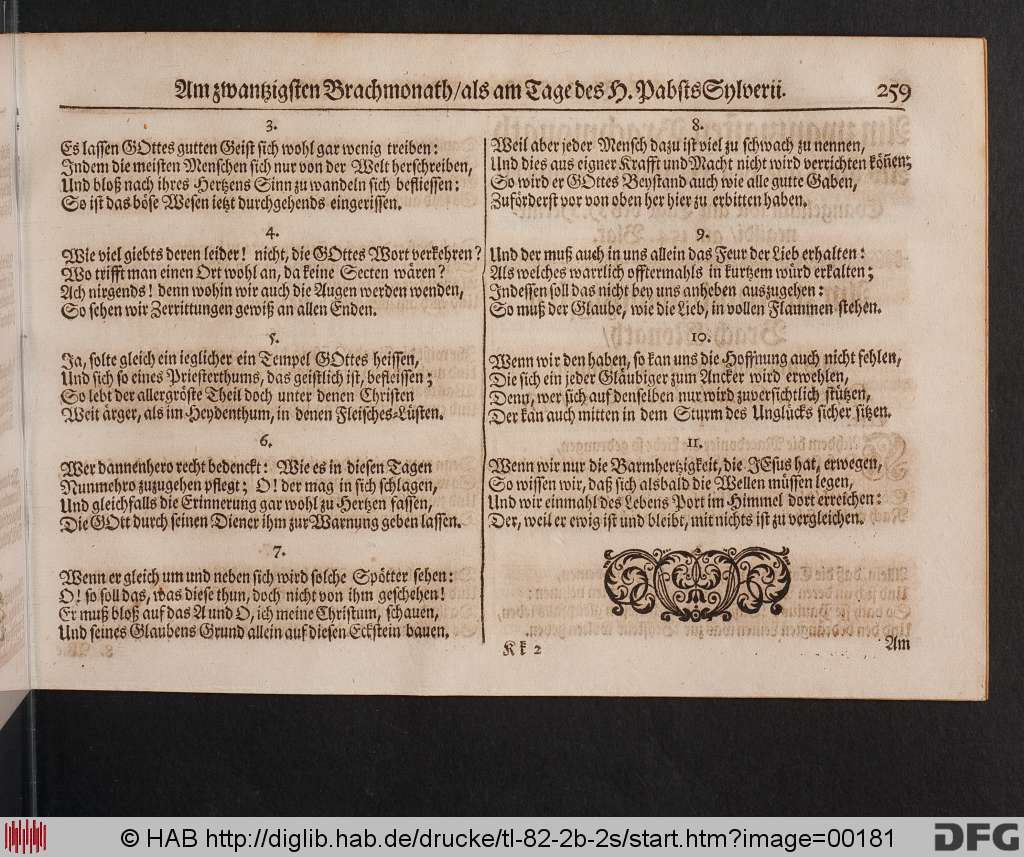 Am zwantzigsten Brachmonath/als am Tage des H. Pabsts Sylverii. 259
3.
Es lassen GOttes gutten Geist sich wohl gar wenig treiben:
Indem die meisten Menschen sich nur von der Welt herschreiben,
Und bloß nach ihres Hertzens Sinn zu wandeln sich befliessen:
So ist das böse Wesen ietzt durchgehends eingerissen.
4.
Wie viel giebts deren leider! nicht, die GOttes Wort verkehren?
Wo trifft man einen Ort wohl an, da keine Secten wären?
Ach nirgends! denn wohin wir auch die Augen werden wenden,
So sehen wir Zerrittungen gewiß an allen Enden.
5.
Ja, solte gleich ein ieglicher ein Tempel GOttes heissen,
Und sich so eines Priesterthums, das geistlich ist, befleissen;
So lebt der allergröste Theil doch unter denen Christen
Weit ärger, als im Heydenthum, in denen Fleisches-Lüsten.
6.
Wer dannenhero recht bedenckt: Wie es in diesen Tagen
Nunmehro zuzugehen pflegt; O! der mag in sich schlagen,
Und gleichfalls die Erinnerung gar wohl zu Hertzen fassen,
Die GOtt durch seinen Diener ihm zur Warnung geben lassen.
7.
Wenn er gleich um und neben sich wird solche Spötter sehen:
O! so soll das, was diese thun, doch nicht von ihm geschehen!
Er muß bloß auf das A und O, ich meine Christum, schauen,
Und seines Glaubens Grund allein auf diesen Eckstein bauen.
8.
Weil aber jeder Mensch dazu ist viel zu schwach zu nennen,
Und dies aus eigner Krafft und Macht nicht wird verrichten köñen;
So wird er GOttes Beystand auch wie alle gutte Gaben,
Zuförderst vor von oben her hier zu erbitten haben.
9.
Und der muß auch in uns allein das Feur der Lieb erhalten:
Als welches warrlich offtermahls in kurtzem würd erkalten;
Indessen soll das nicht bey uns anheben auszugehen:
So muß der Glaube, wie die Lieb, in vollen Flammen stehen.
10.
Wenn wir den haben, so kan uns die Hoffnung auch nicht fehlen,
Die sich ein jeder Gläubiger zum Ancker wird erwehlen,
Denn, wer sich auf denselben nur wird zuversichtlich stützen,
Der kan auch mitten in dem Sturm des Unglücks sicher sitzen.
11.
Wenn wir nur die Barmhertzigkeit, die JEsus hat, erwegen,
So wissen wir, daß sich alsbald die Wellen müssen legen,
Und wir einmahl des Lebens Port im Himmel dort erreichen:
Der, weil er ewig ist und bleibt, mit nichts ist zu vergleichen.
K k 2
Am
© HAB http://diglib.hab.de/drucke/tl-82-2b-2s/start.htm?image=00181
DFG